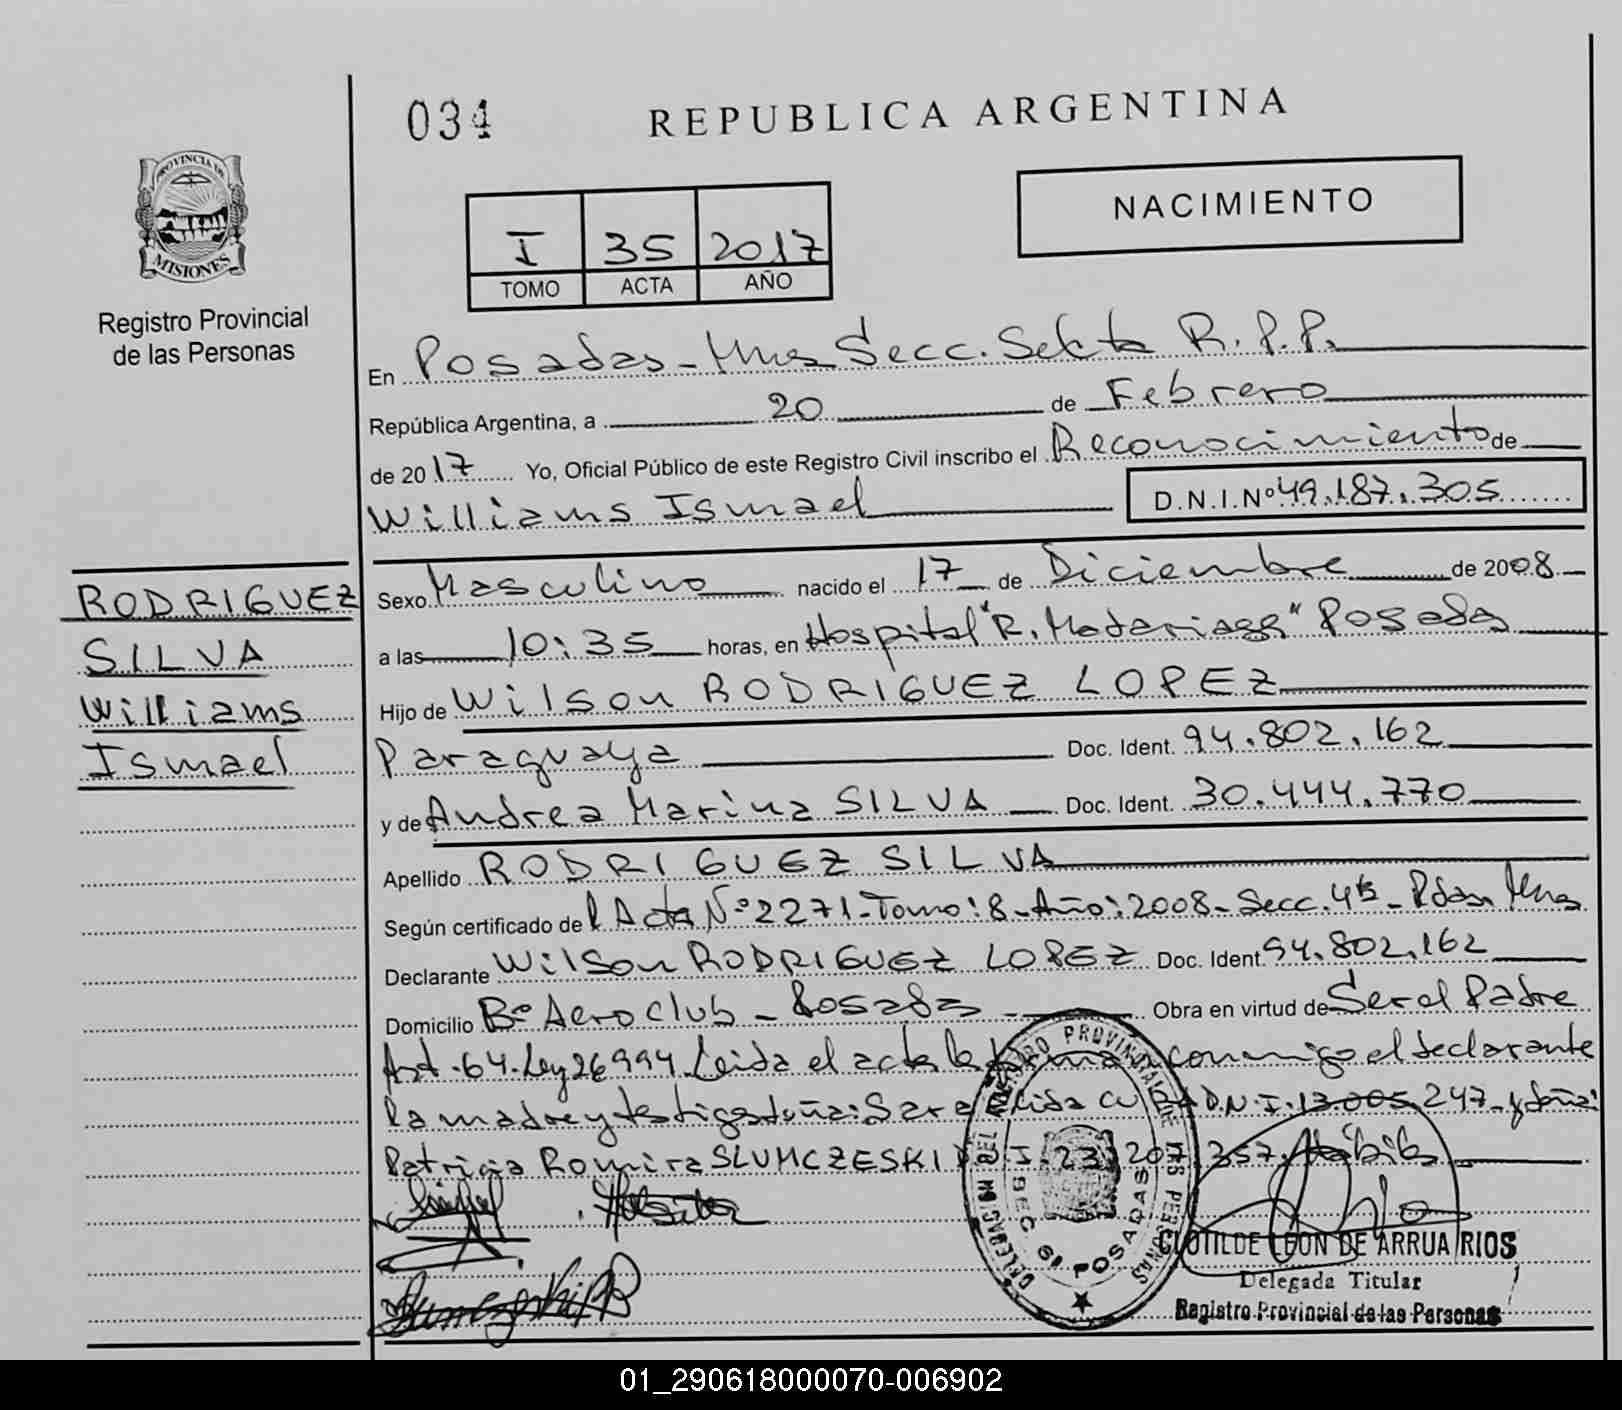 034
REPUBLICA ARGENTINA
PROVINCIA DE
MISIONES
Registro Provincial
de las Personas
NACIMIENTO
I 35 2017
TOMO ACTA AÑO
En Posadas - Mnes Secc. Sexta R.P.P.
República Argentina, a 20 de Febrero
de 2017 Yo, Oficial Público de este Registro Civil inscribo el Reconocimiento de
Williams Ismael D.N.I.Nº 49.187.305
RODRIGUEZ
SILVA
Williams
Ismael
Sexo Masculino nacido el 17 de Diciembre de 2008
a las 10:35 horas, en Hospital "R. Madariaga" Posadas
Hijo de Wilson RODRIGUEZ LOPEZ
Paraguaya Doc. Ident. 94.802.162
y de Andrea Marina SILVA Doc. Ident. 30.444.770
Apellido RODRIGUEZ SILVA
Según certificado del Acta Nº 2271 - Tomo: 8 - Año: 2008 - Secc. 4ta - Pdas Mnes
Declarante Wilson RODRIGUEZ LOPEZ Doc. Ident. 94.802.162
Domicilio Bº Aero Club - Posadas Obra en virtud de Ser el Padre
Art. 64. Ley 26994. Leida el acta la firma conmigo el declarante
la madre y testigos doña: Sara D.N.I. 13.005.247 - y doña:
Patricia Romira SLUMCZESKI D.N.I. 23.207.357.
REGISTRO PROVINCIAL DE LAS PERSONAS
DELEGACION
SEC. 6ª POSADAS
CLOTILDE LEON DE ARRUA RIOS
Delegada Titular
Registro Provincial de las Personas
01_290618000070-006902